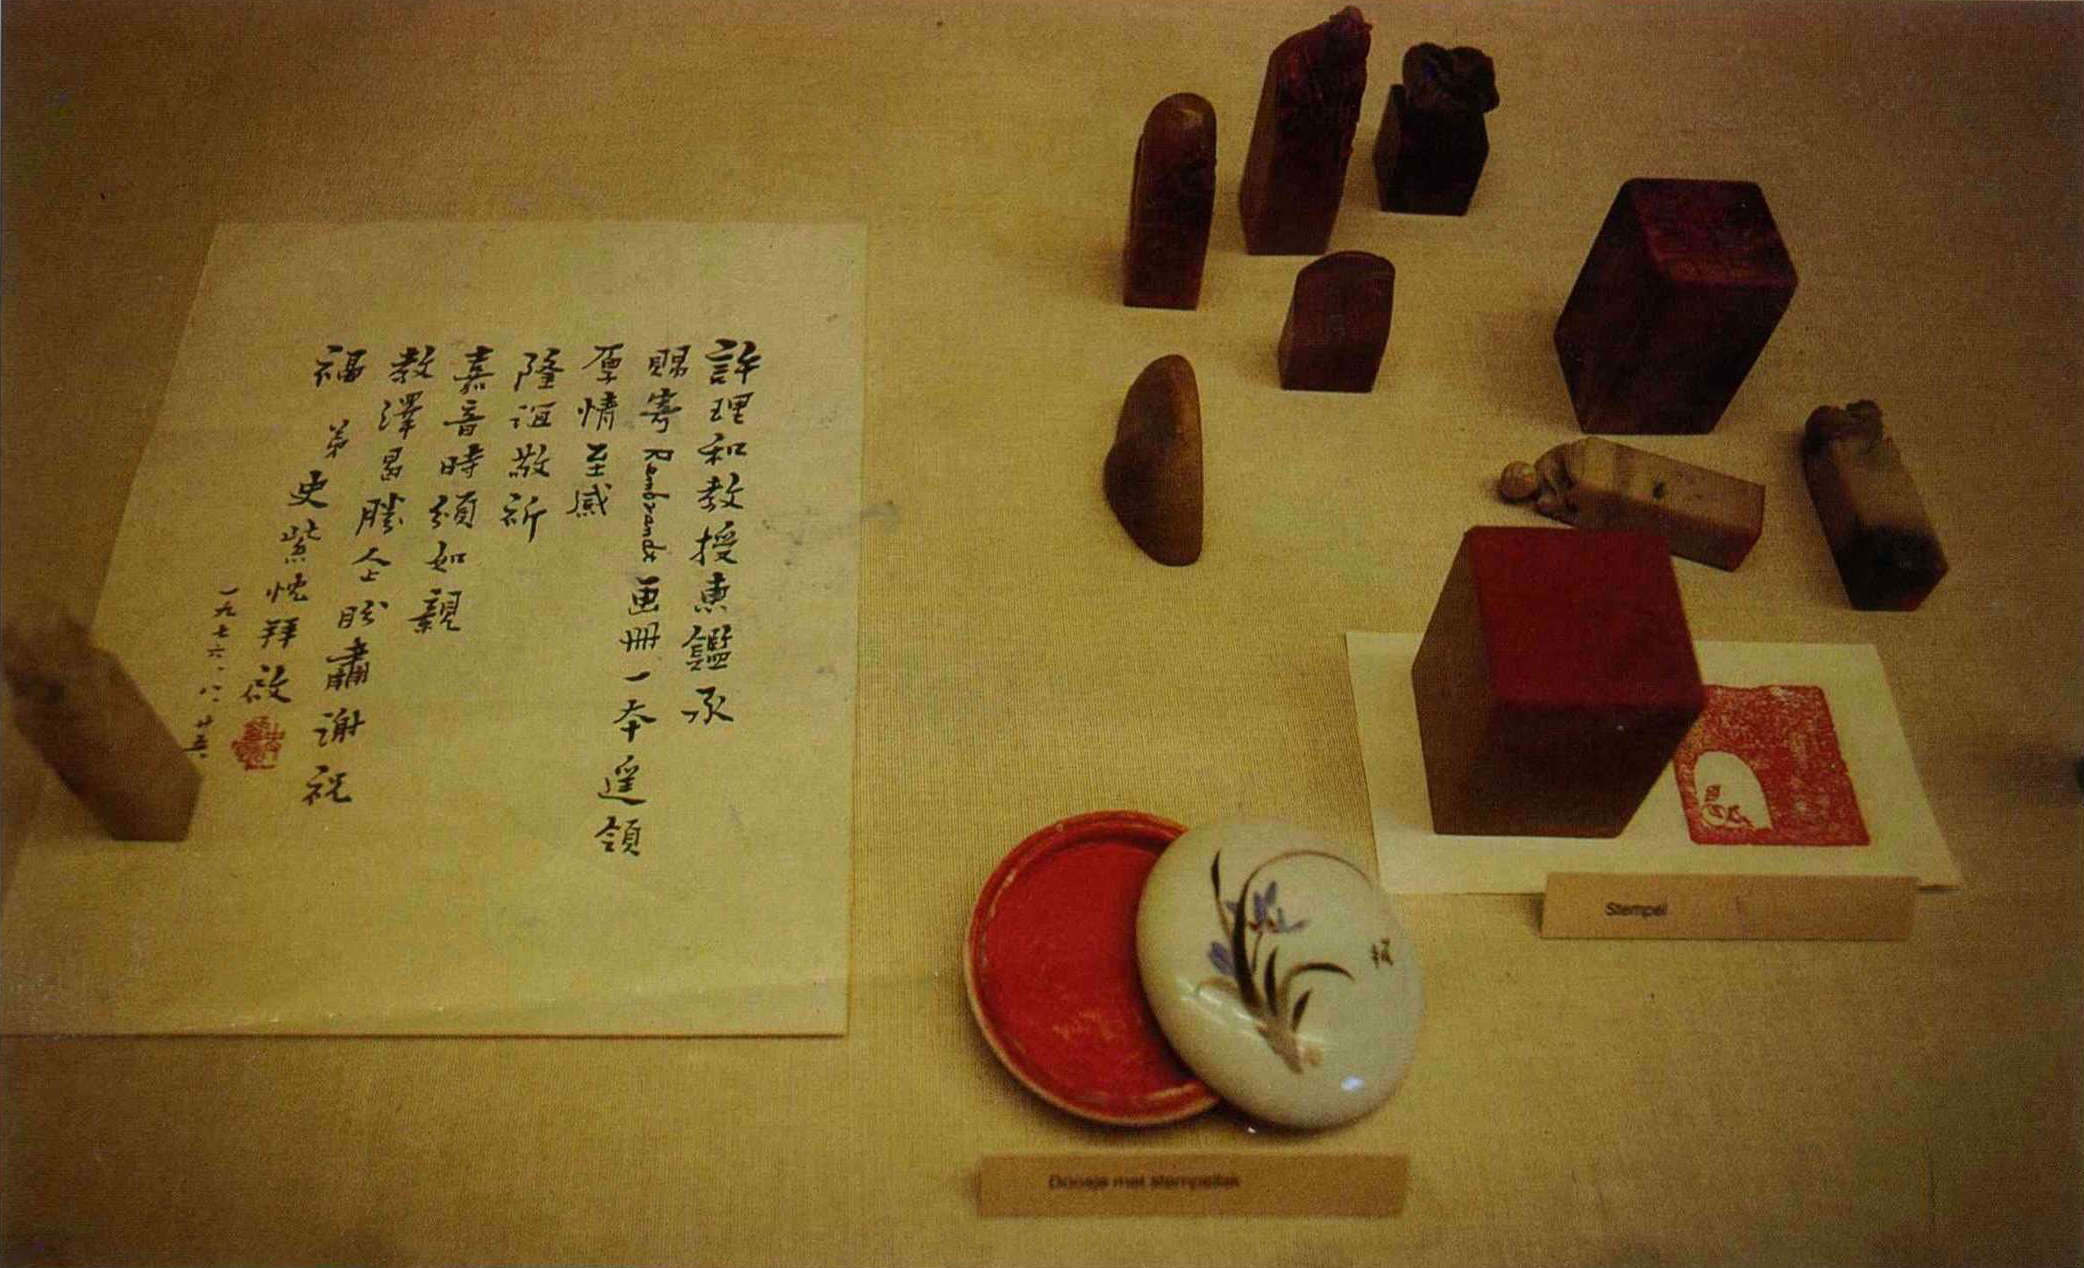 許理和教授惠鑑承
賜寄Rembrandt画冊一本遥領
厚情至感
隆誼敬祈
嘉音時頒如親
教澤曷勝企盼肅謝祝
福
弟史紫忱拜啟
一九七六、八、廿五
Stempel
Doosje met stempellak